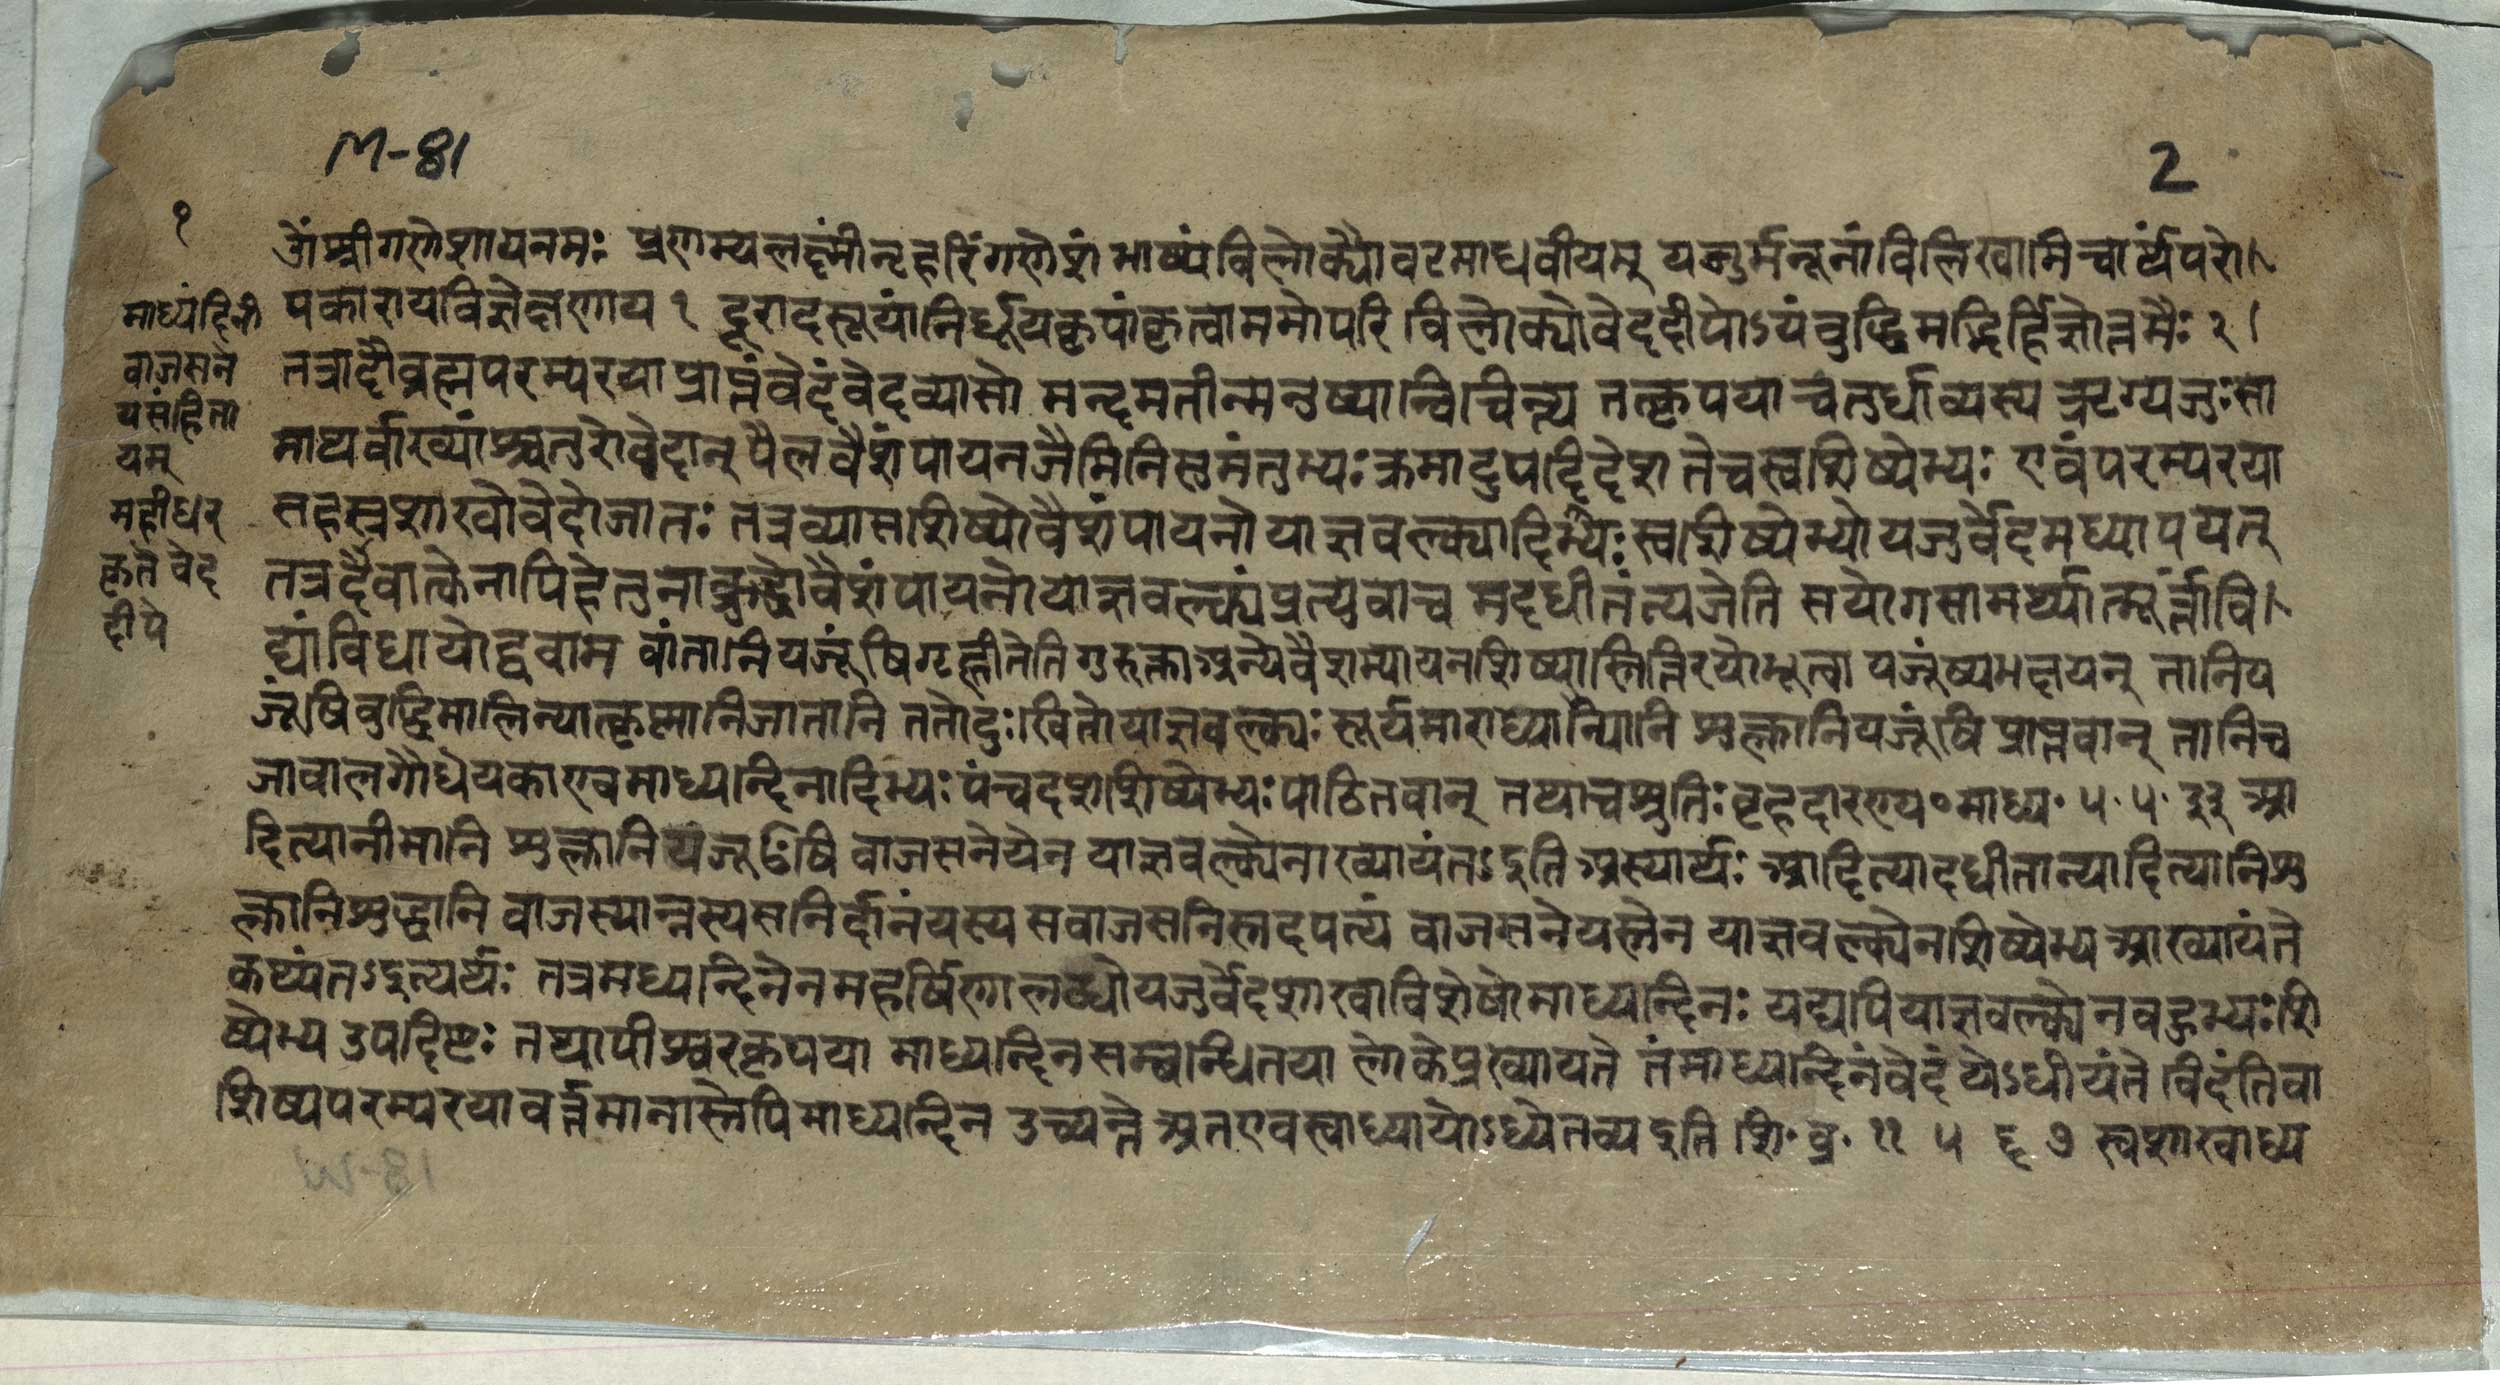 M-81
2
१
ॐश्रीगणेशायनमः प्रणम्यलक्ष्मींनृहरिंगणेशं भाष्यंविलोक्यौवटमाधवीयम् यजुर्मनूनांविलिखामिचार्थंपरो
पकारायविजेक्षणाय १ दूरादसूयांनिर्धूयकृपांकृत्वाममोपरि विलोक्योवेददीपोऽयंबुद्धिमद्भिर्द्विजोत्तमैः २।
तत्रादौब्रह्मपरम्परयाप्राप्तंवेदंवेदव्यासो मन्दमतीन्मनुष्यान्विचिन्त्य तत्कृपयाचतुर्धाव्यस्य ऋग्यजुःसा
माथर्वाख्यांश्चतुरोवेदान् पैलवैशंपायनजैमिनिसुमंतुभ्यःक्रमादुपदिदेश तेचस्वशिष्येभ्यः एवंपरम्परया
सहस्रशाखोवेदोजातः तत्रव्यासशिष्योवैशंपायनोयाज्ञवल्क्यादिभ्यःस्वशिष्येभ्योयजुर्वेदमध्यापयत्
तत्रदैवात्केनापिहेतुनाक्रुद्धोवैशंपायनोयाज्ञवल्क्यंप्रत्युवाच मदधीतंत्यजेति सयोगसामर्थ्यान्मूर्त्तांवि
द्यांविधायोद्ववाम वांतानियजूंषिगृह्णीतेतिगुरूक्ताअन्येवैशम्पायनशिष्यास्तित्तिरयोभूत्वा यजूंष्यभक्षयन् तानिय
जूंषिबुद्धिमालिन्यात्कृष्णानिजातानि ततोदुःखितोयाज्ञवल्क्यः सूर्यमाराध्यान्यानि शुक्लानियजूंषि प्राप्तवान् तानिच
जाबालगौधेयकाण्वमाध्यन्दिनादिभ्यः पंचदशशिष्येभ्यःपाठितवान् तथाचश्रुतिःबृहदारण्य॰माध्य॰ ५॰ ५॰ ३३ आ
दित्यानीमानि शुक्लानियजूꣳषि वाजसनेयेन याज्ञवल्क्येनाख्यायंतऽइति अस्यार्थः आदित्यादधीतान्यादित्यानिशु
क्लानिशुद्धानि वाजस्यान्नस्यसनिर्दानंयस्य सवाजसनिस्तदपत्यं वाजसनेयस्तेन याज्ञवल्क्येनशिष्येभ्य आख्यायंते
कथ्यंतऽइत्यर्थः तत्रमध्यन्दिनेनमहर्षिणालब्धोयजुर्वेदशाखाविशेषोमाध्यन्दिनः यद्यपियाज्ञवल्क्येनबहुभ्यःशि
ष्येभ्य उपदिष्टः तथापीश्वरकृपया माध्यन्दिनसम्बन्धितया लोकेप्रख्यायते तंमाध्यन्दिनंवेदं येऽधीयंते विदंतिवा
शिष्यपरम्परयावर्त्तमानास्तेपिमाध्यन्दिन उच्यन्ते अतएवस्वाध्यायोऽध्येतव्यइति श॰ब्र॰ ११ ५ ६ ७ स्वशाखाध्य
माध्यंदिनी
वाजसने
यसंहिता
यम्
महीधर
कृते वेद
दीपे